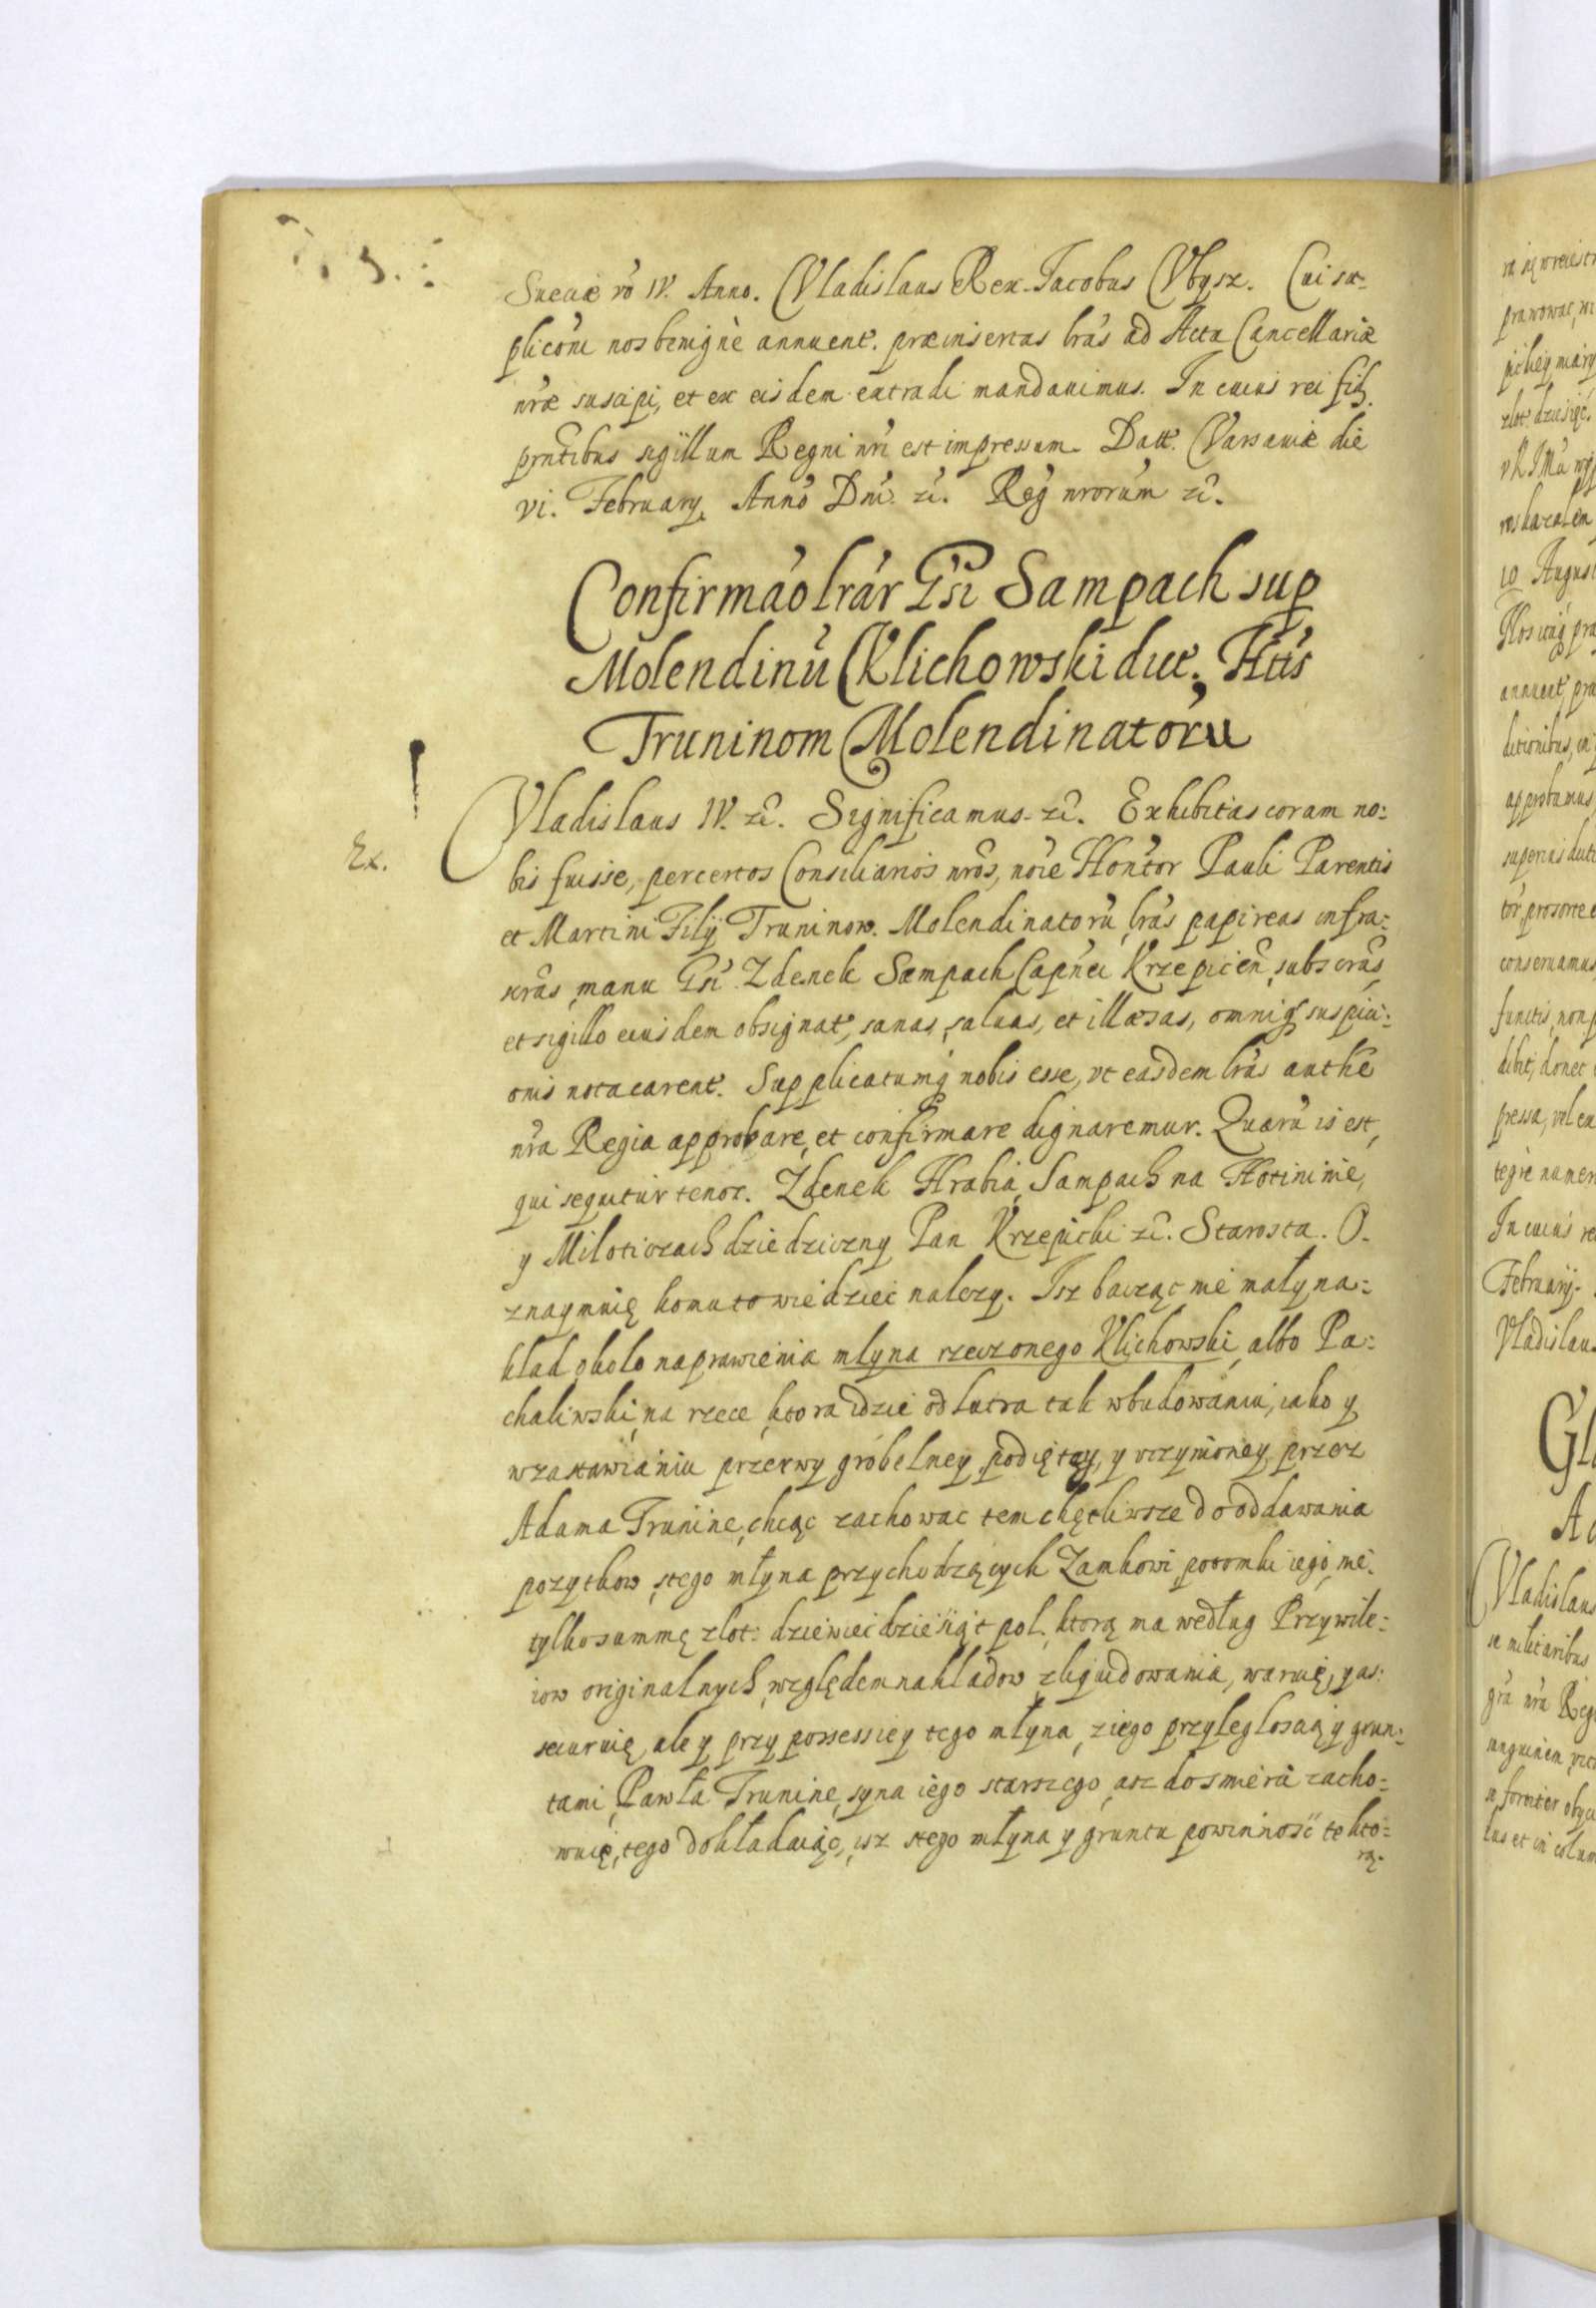 Sueciæ vo IV. Anno. Vladislaus Rex. Jacobus Vbysz. Cui su-
pliconi nos benignè annuent. præinsertas lras ad Acta Cancellariæ
nræ suscipi, et ex eisdem extradi mandauimus. In cuius rei fid.
prntibus sigillum Regni nri est impressum. Datt. Varsauiæ die
vi. February, Anno Dni. zc. Reg nrorum zc.
Confirmao lrar Gsi Sampach sup
Molendinu Klichowski dict. Htis
Truninom Molendinatoru
Ex.
Vladislaus IV. zc. Significamus zc. Exhibitas coram no:
bis fuisse, per certos Consiliarios nros, noie Hontor Pauli Parentis
et Martini Filij Truninow. Molendinatoru, lras papireas infra:
scras, manu Gsi Zdenek Sampach Capnei Krzepicen, subscras,
et sigillo eiusdem obsignat, sanas, saluas, et illæsas, omniq suspici:
onis nota carent. Supplicatumq nobis esse, vt easdem lras authe
nra Regia approbare, et confirmare dignaremur. Quaru is est,
qui sequitur tenor. Zdenek Hrabia, Sampach na Hotininie,
y Miloticzach dziedziczny Pan Krzepicki zc. Starosta. O-
znaymuię komu to wiedziec nalezy. Isz bacząc nie mały na:
kład około naprawienia młyna rzeczonego Klichowski, albo Pa:
chaliwski, na rzece, ktora idzie od Lutra tak w budowaniu, iako y
w zastawianiu przerwy grobelney podiętey, y vczynioney przez
Adama Trunine, chcąc zachowac tem chętliwsze do oddawania
pozytkow, stego młyna przychodzących Zamkowi potomki iego, nie
tylko summę złot: dziewiecdziesiąt pol. ktorą ma według Przywile:
iow originalnych, względem nakladow zliquidowania, waruię, y as:
securuię, ale y przy possessiey tego młyna, z iego przyległoscią y grun:
tami, Pawła Trunine, syna iego starszego, asz do smierci zacho:
wuię, tego dokładaiąc, isz stego młyna y gruntu powinnosc te kto:
rą.